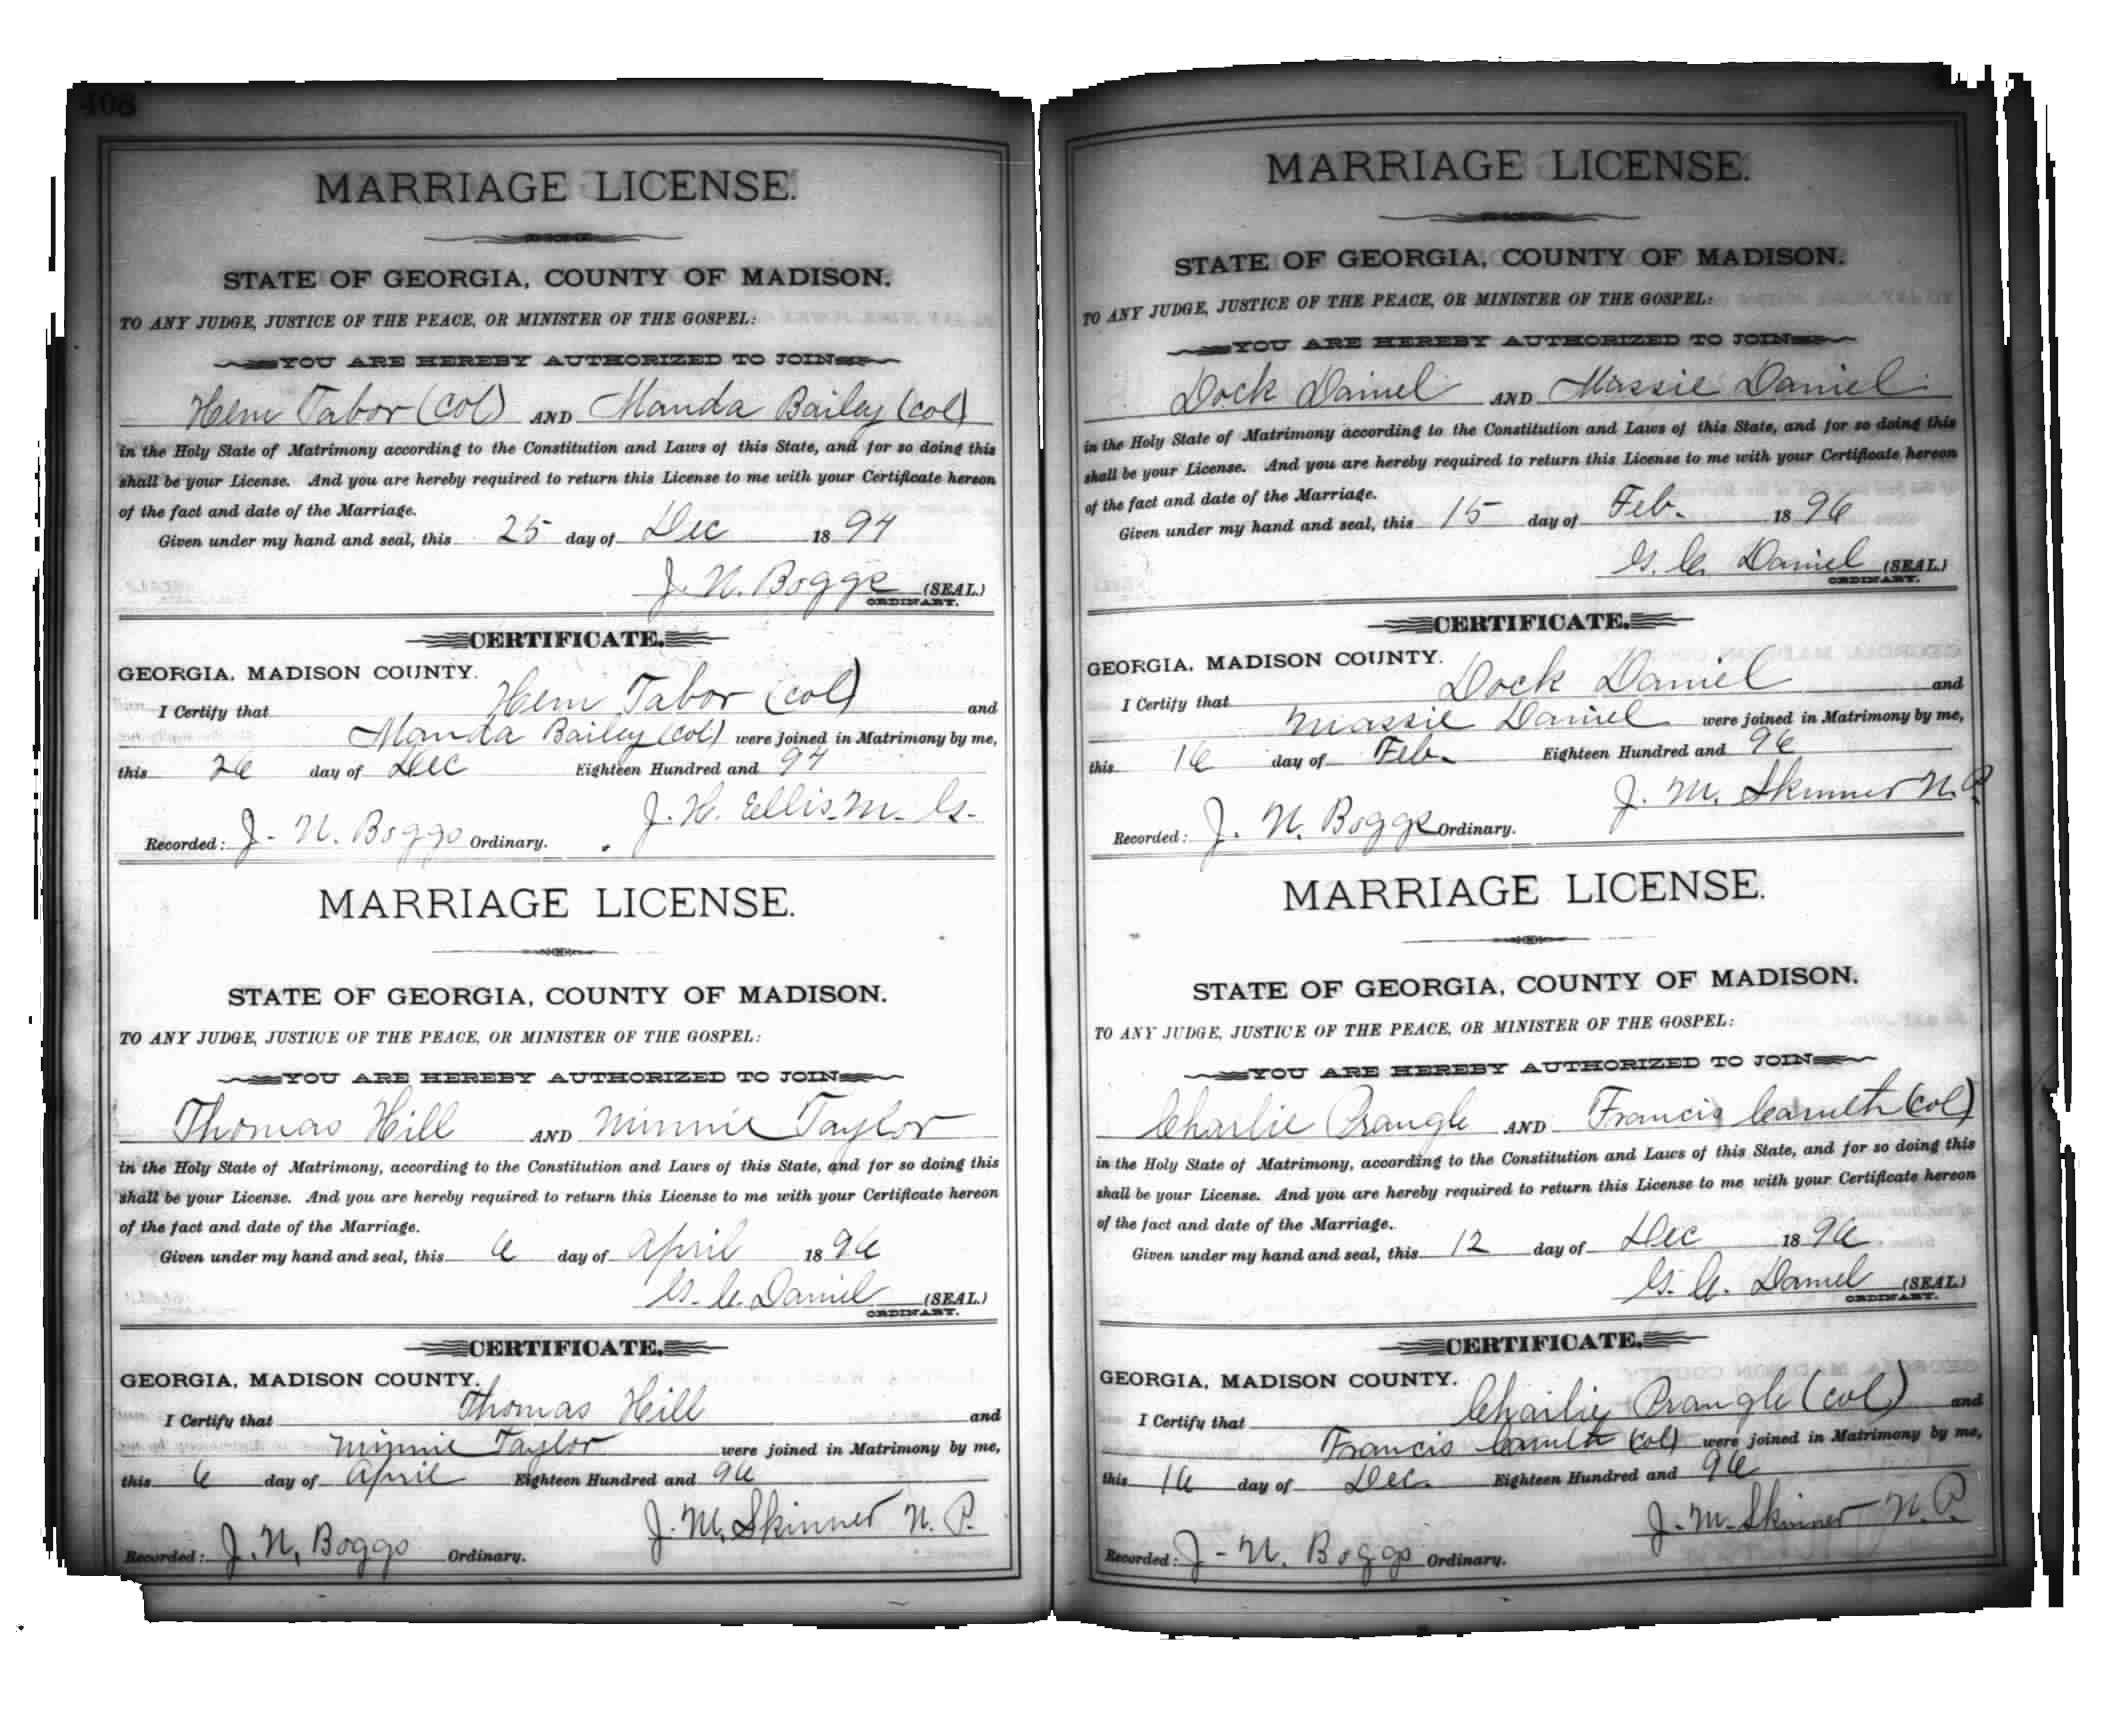 408
MARRIAGE LICENSE.
STATE OF GEORGIA, COUNTY OF MADISON.
TO ANY JUDGE, JUSTICE OF THE PEACE, OR MINISTER OF THE GOSPEL:
YOU ARE HEREBY AUTHORIZED TO JOIN
Tabor (Col) AND Manda Bailey (Col)
in the Holy State of Matrimony according to the Constitution and Laws of this State, and for so doing this
shall be your License. And you are hereby required to return this License to me with your Certificate hereon
of the fact and date of the Marriage.
Given under my hand and seal, this 25 day of Dec 1894
J. N. Boggs (SEAL.)
ORDINARY.
CERTIFICATE.
GEORGIA, MADISON COUNTY.
I Certify that Tabor (Col) and
Manda Bailey (Col) were joined in Matrimony by me,
this 26 day of Dec Eighteen Hundred and 94
J. H. Ellis M. G.
Recorded: J. N. Boggs Ordinary.
MARRIAGE LICENSE.
STATE OF GEORGIA, COUNTY OF MADISON.
TO ANY JUDGE, JUSTICE OF THE PEACE, OR MINISTER OF THE GOSPEL:
YOU ARE HEREBY AUTHORIZED TO JOIN
Thomas Hill AND Minnie Taylor
in the Holy State of Matrimony, according to the Constitution and Laws of this State, and for so doing this
shall be your License. And you are hereby required to return this License to me with your Certificate hereon
of the fact and date of the Marriage.
Given under my hand and seal, this 6 day of April 1896
G. C. Daniel (SEAL.)
ORDINARY.
CERTIFICATE.
GEORGIA, MADISON COUNTY.
I Certify that Thomas Hill and
Minnie Taylor were joined in Matrimony by me,
this 6 day of April Eighteen Hundred and 96
J. M. Skinner N. P.
Recorded: J. N. Boggs Ordinary.
MARRIAGE LICENSE.
STATE OF GEORGIA, COUNTY OF MADISON.
TO ANY JUDGE, JUSTICE OF THE PEACE, OR MINISTER OF THE GOSPEL:
YOU ARE HEREBY AUTHORIZED TO JOIN
Dock Daniel AND Massie Daniel
in the Holy State of Matrimony according to the Constitution and Laws of this State, and for so doing this
shall be your License. And you are hereby required to return this License to me with your Certificate hereon
of the fact and date of the Marriage.
Given under my hand and seal, this 15 day of Feb. 1896
G. C. Daniel (SEAL.)
ORDINARY.
CERTIFICATE.
GEORGIA, MADISON COUNTY.
I Certify that Dock Daniel and
Massie Daniel were joined in Matrimony by me,
this 16 day of Feb. Eighteen Hundred and 96
J. M. Skinner N. P.
Recorded: J. N. Boggs Ordinary.
MARRIAGE LICENSE.
STATE OF GEORGIA, COUNTY OF MADISON.
TO ANY JUDGE, JUSTICE OF THE PEACE, OR MINISTER OF THE GOSPEL:
YOU ARE HEREBY AUTHORIZED TO JOIN
Charlie Prangle AND Francis Caruth (Col)
in the Holy State of Matrimony, according to the Constitution and Laws of this State, and for so doing this
shall be your License. And you are hereby required to return this License to me with your Certificate hereon
of the fact and date of the Marriage.
Given under my hand and seal, this 12 day of Dec 1896
G. C. Daniel (SEAL.)
ORDINARY.
CERTIFICATE.
GEORGIA, MADISON COUNTY.
I Certify that Charlie Prangle (Col) and
Francis Caruth (Col) were joined in Matrimony by me,
this 16 day of Dec. Eighteen Hundred and 96
J. M. Skinner N. P.
Recorded: J. N. Boggs Ordinary.